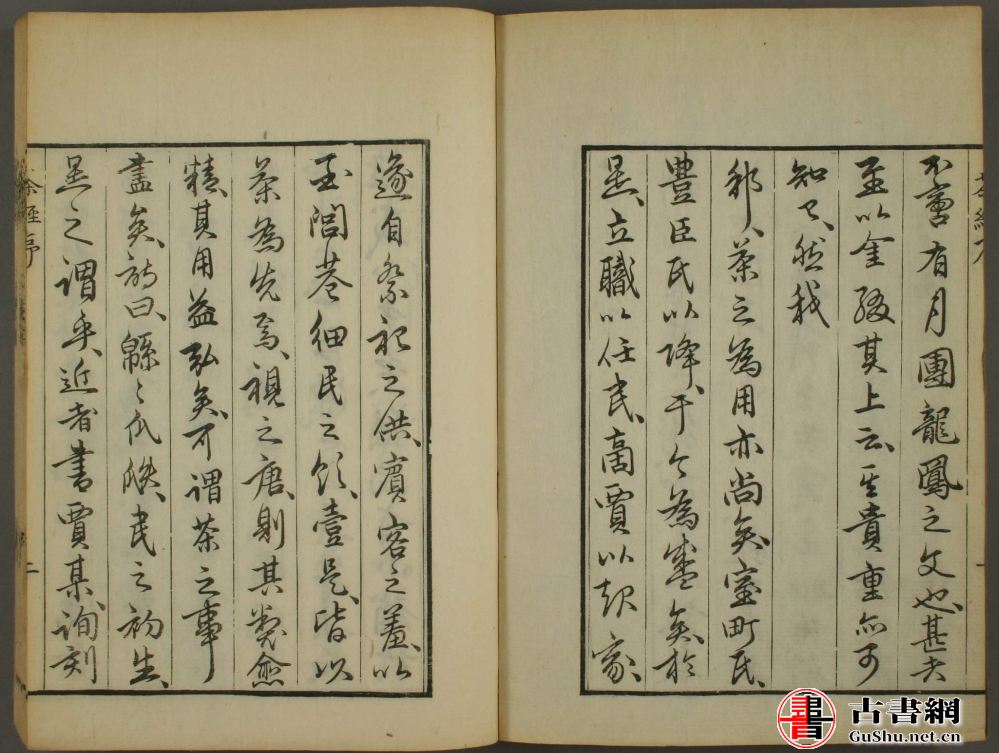 茶經序
不啻有月團龍鳳之文也甚
至以金綴其上云其貴重亦可
知已然我
邦茶之為用亦尚矣室町氏
豐臣氏以降于今為盛矣於
是立職以任商賈以起家
遂自祭祀之供賓客之羞以
至閭巷細民之飲壹是皆以
茶為先焉視之唐則其業愈
精其用益弘矣可謂茶之事
盡矣詩曰緜〻瓜瓞民之初生
是之謂乎近者書賈某詢刻
茶經序
二
古書網
GuShu.net.cn